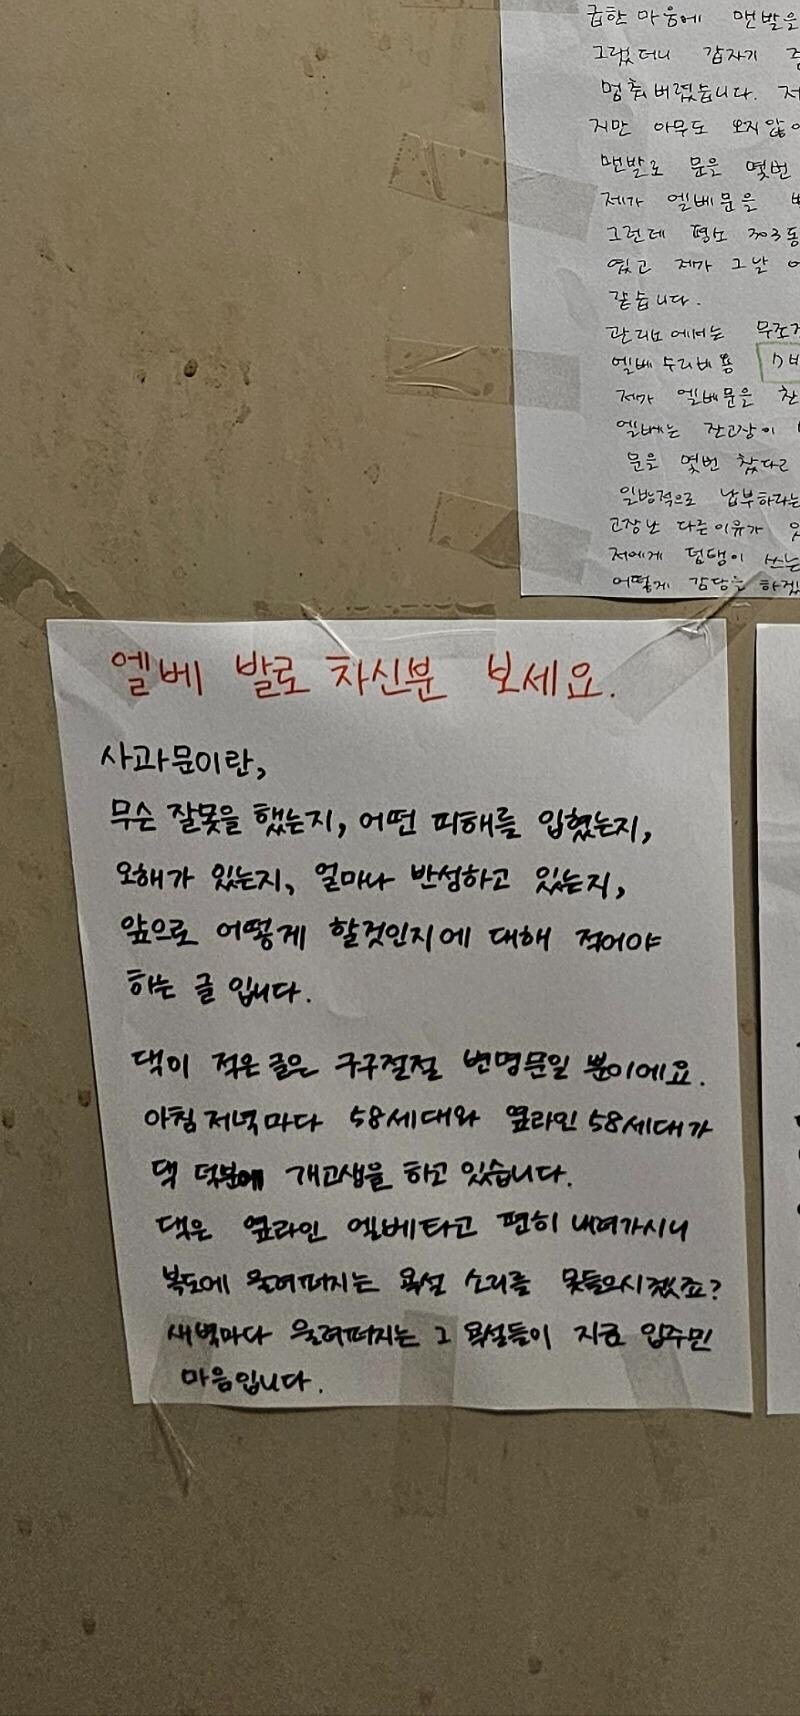 급한 마음에 맨발을
그랬더니 갑자기
멈춰버렸습니다. 저
지만 아무도 오지않아
맨발로 문을 몇번
제가 엘베문을
그런데 평소 303동
였고 제가 그날
같습니다.
관리소에서는 무조건
엘베 수리비용
제가 엘베문을 찬
엘베는 잔고장이
문을 몇번 찼다고
일방적으로 납부하라는
고장난 다른이유가
저에게 덤탱이 쓰는
어떻게 감당을 하겠
엘베 발로 차신분 보세요.
사과문이란,
무슨 잘못을 했는지, 어떤 피해를 입혔는지,
오해가 있는지, 얼마나 반성하고 있는지,
앞으로 어떻게 할것인지에 대해 적어야
하는 글 입니다.
댁이 적은 글은 구구절절 변명문일 뿐이에요.
아침 저녁마다 58세대와 옆라인 58세대가
댁 덕분에 개고생을 하고 있습니다.
댁은 옆라인 엘베타고 편히 내려가시니
복도에 울려퍼지는 욕설 소리를 못들으시겠죠?
새벽마다 울려퍼지는 그 욕설들이 지금 입주민
마음입니다.